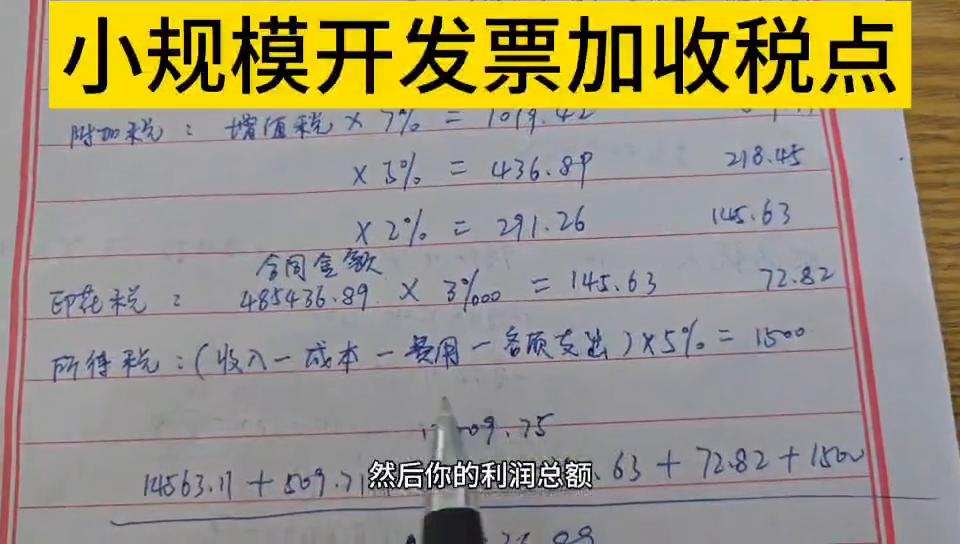 小规模开发票加收税点
附加税：增值税×7%=1019.42
×3%=436.89 218.45
×2%=291.26 145.63
合同金额
印花税：485436.89×3%00=145.63 72.82
所得税：(收入-成本-费用-各项支出)×5%=1500
09.75
14563.11+509.71 .63+72.82+1500
然后你的利润总额